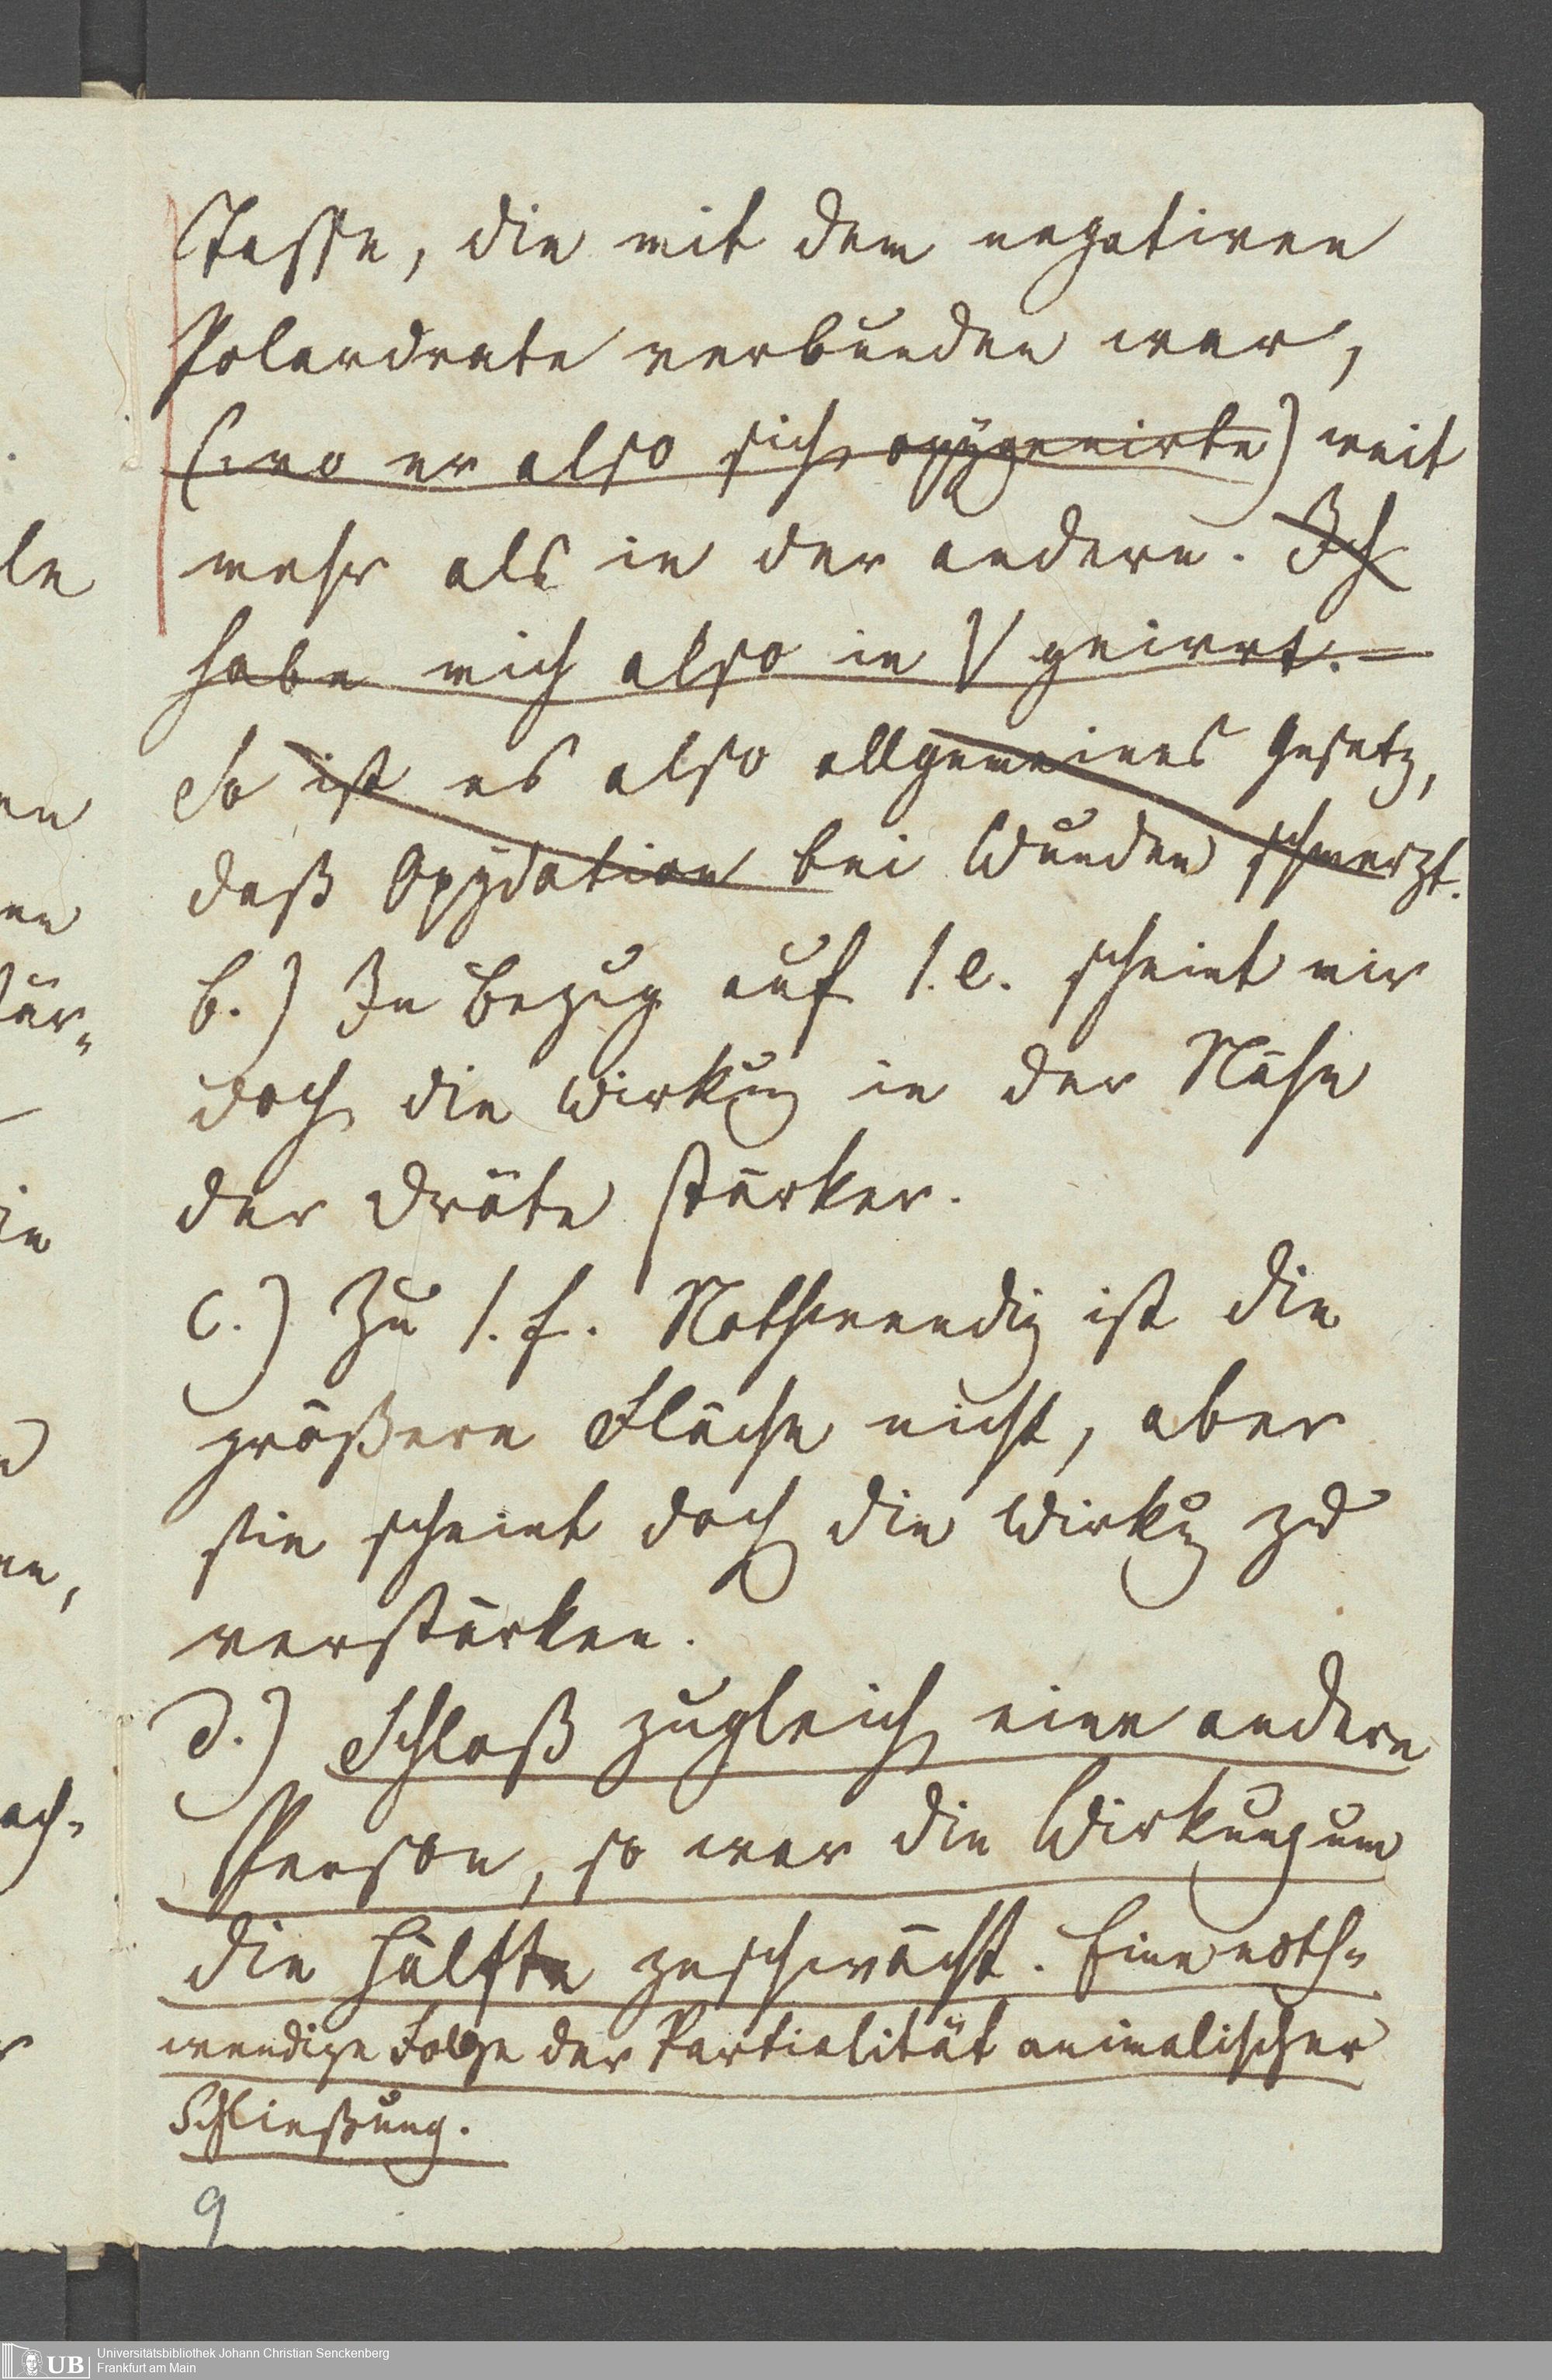 Tasse, die mit dem negativen
Polardrate verbunden war,
(wo er also sich oxygenirte) weit
mehr als in der andern. Ich
habe mich also in V geirrt.—
So ist es also allgemeines Gesetz,
daß Oxydation bei Wunden schmerzt.
b.) In Bezug auf 1.e. scheint mir
doch die Wirkung in der Nähe
der Dräte stärker.
c.) Zu 1.f. Nothwendig ist die
größere Fläche nicht, aber
sie scheint doch die Wirkung zu
verstärken.
d.) Schloß zugleich eine andere
Person, so war die Wirkung um
die Hälfte geschwächt. Eine noth-
wendige Folge der Partialität animalischer
Schließung.
9
le
en
en
tär-
in
en,
ach-
UB Universitätsbibliothek Johann Christian Senckenberg
Frankfurt am Main